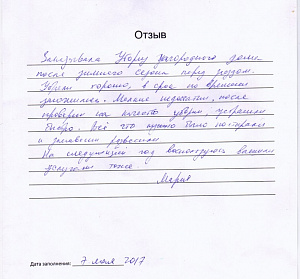 Отзыв
Заказывала уборку загородного дома
после зимнего сезона перед
Убрали хорошо, в срок по времени
уложились. Мелкие недочеты, после
проверки на качество уборки, устранили
быстро. Всё что нужно было постирали
и
На следующий год воспользуюсь вашими
услугами тоже.
Мария
Дата заполнения: 7 мая 2017